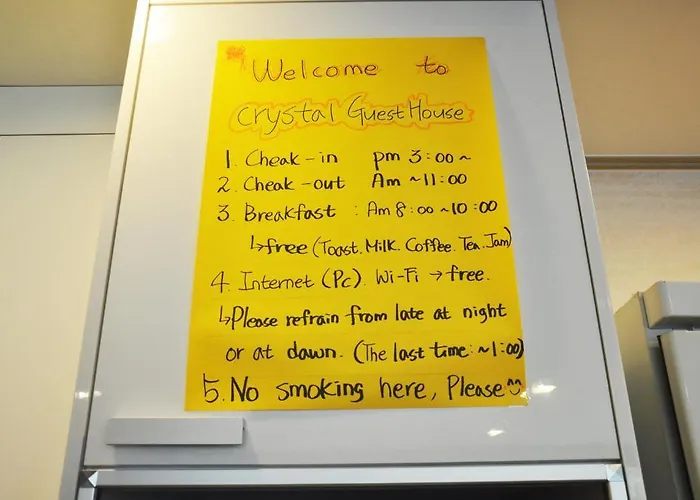 Welcome to
Crystal GuestHouse
1. Cheak-in pm 3:00~
2. Cheak-out Am ~11:00
3. Breakfast : Am 8:00~10:00
↳free (Toast. Milk. Coffee. Tea. Jam)
4. Internet (Pc). Wi-Fi → free.
↳Please refrain from late at night
or at dawn. (The last time: ~1:00)
5. No smoking here, Please^^